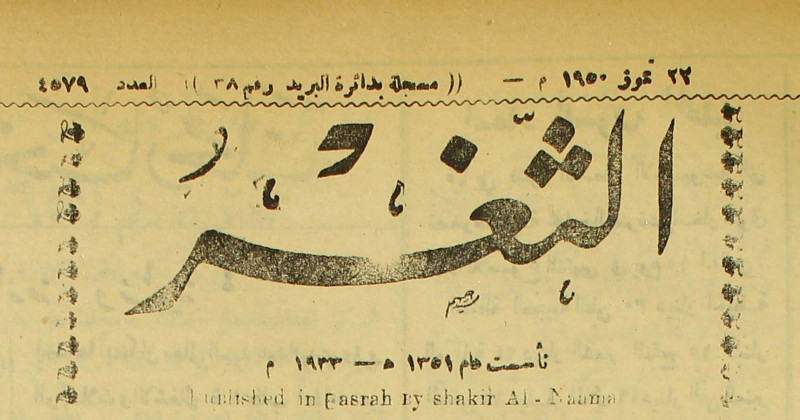 ٢٢ تموز ١٩٥٠ م — (( مسجلة بدائرة البريد رقم ٣٨ )) العدد ٤٥٧٩
الثغر
تأسست عام ١٣٥١ ه — ١٩٣٣ م
Published in Basrah By shakir Al - Naama